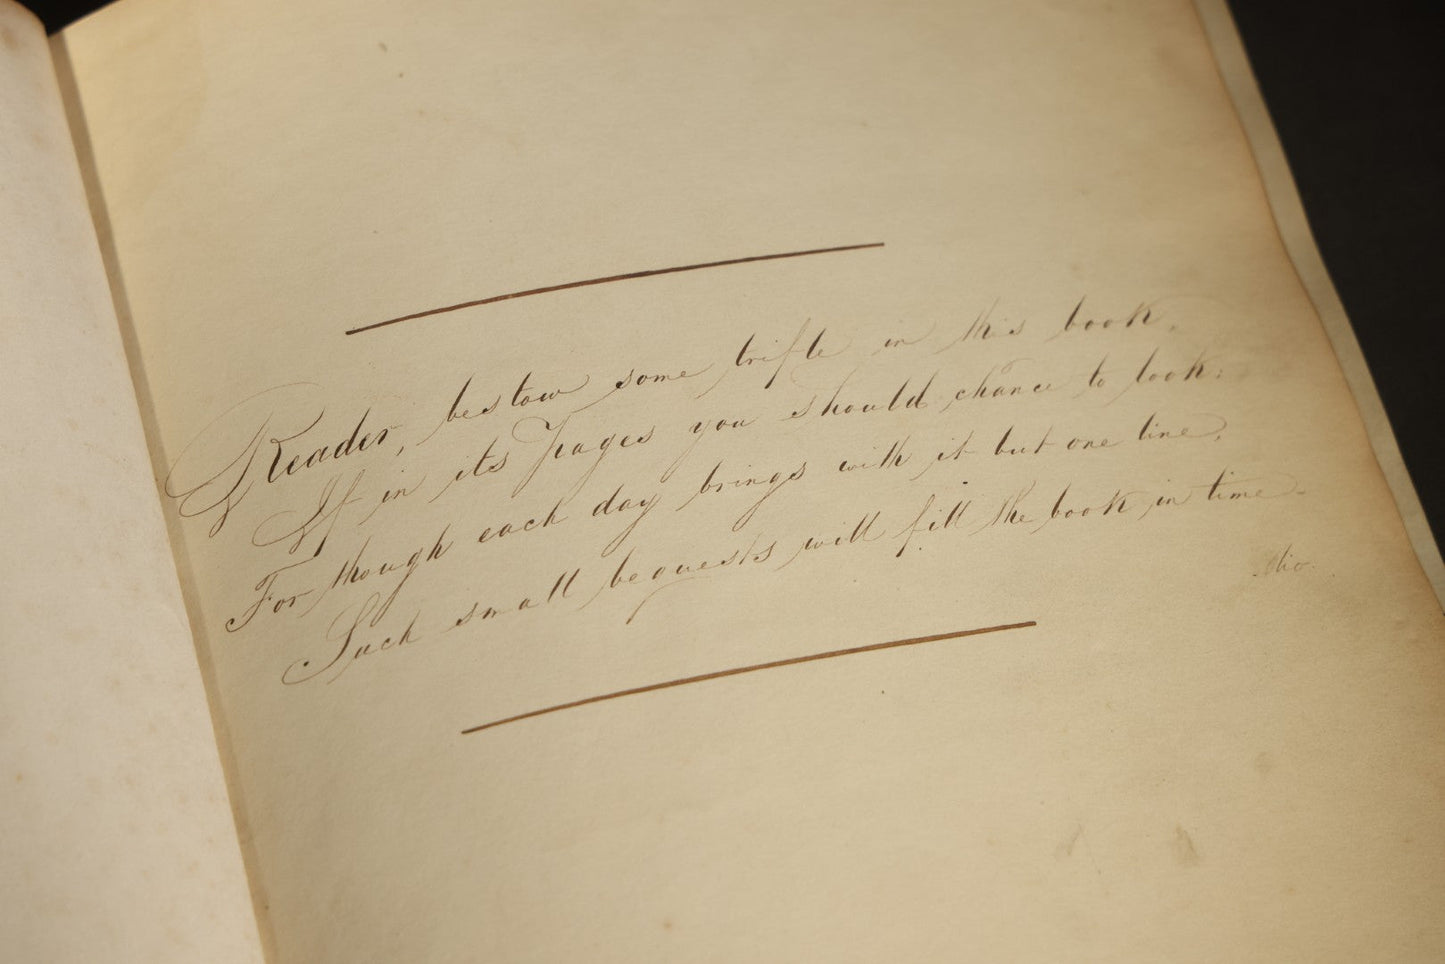 Reader, bestow some trifle in this book,
If in its pages you should chance to look:
For though each day brings with it but one line,
Such small bequests will fill the book in time.